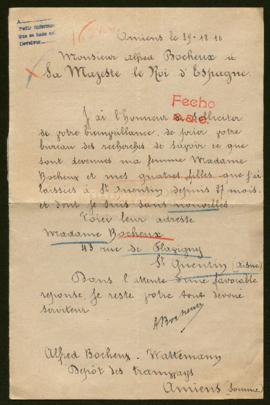 Amiens le 29-12-16
Monsieur Alfred Bocheux à
Sa Majesté le Roi d'Espagne.
Fecho
J'ai l'honneur de solliciter
de votre bienveillance, de prier votre
bureau des recherches de savoir ce que
sont devenues ma femme Madame
Bocheux et mes quatres filles que j'ai
laissées à St Quentin, depuis 27 mois.
et dont je suis sans nouvelles
Voici leur adresse
Madame Bocheux
43 rue de Flavigny
St Quentin (Aisne)
Dans l'attente d'une favorable
reponse, je reste votre tout dévoué
serviteur
Alfred Bocheux - Wattemann
Dépôt des tramways
Amiens Somme